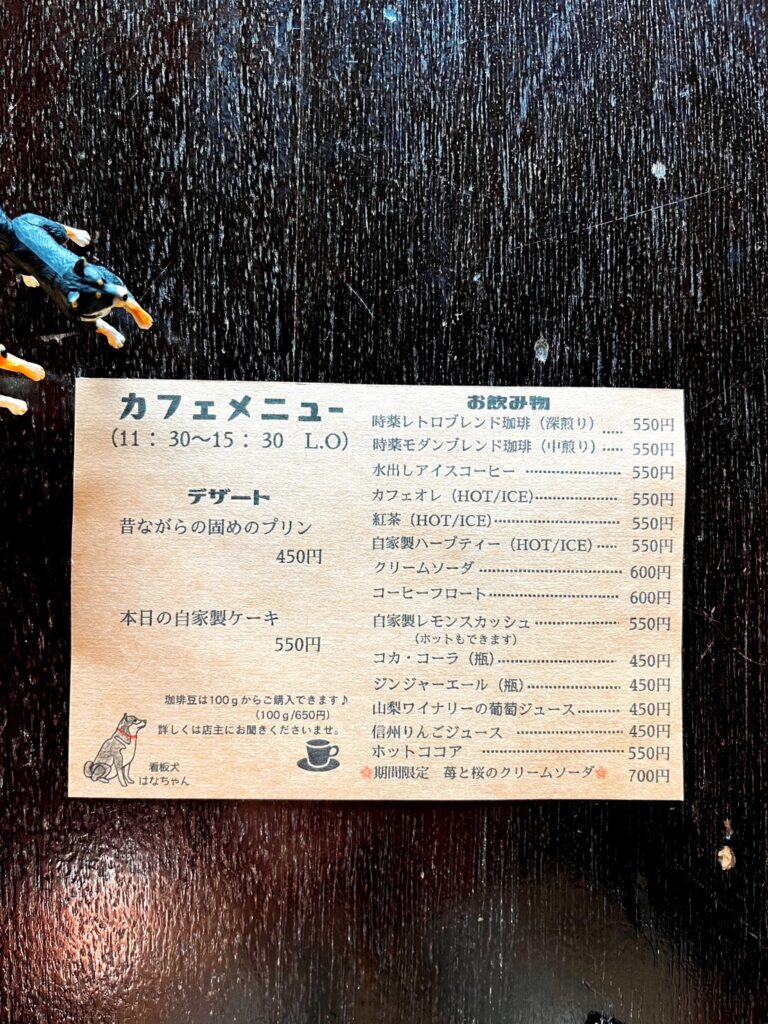 カフェメニュー
（11：30〜15：30 L.O）
デザート
昔ながらの固めのプリン
450円
本日の自家製ケーキ
550円
珈琲豆は100ｇからご購入できます♪
（100ｇ/650円）
詳しくは店主にお聞きくださいませ。
看板犬
はなちゃん
お飲み物
時薬レトロブレンド珈琲（深煎り）…… 550円
時薬モダンブレンド珈琲（中煎り）…… 550円
水出しアイスコーヒー ……………… 550円
カフェオレ（HOT/ICE）…………… 550円
紅茶（HOT/ICE）…………………… 550円
自家製ハーブティー（HOT/ICE）…… 550円
クリームソーダ ……………………… 600円
コーヒーフロート …………………… 600円
自家製レモンスカッシュ …………… 550円
（ホットもできます）
コカ・コーラ（瓶）………………… 450円
ジンジャーエール（瓶）…………… 450円
山梨ワイナリーの葡萄ジュース…… 450円
信州りんごジュース ……………… 450円
ホットココア ……………………… 550円
期間限定 苺と桜のクリームソーダ 700円